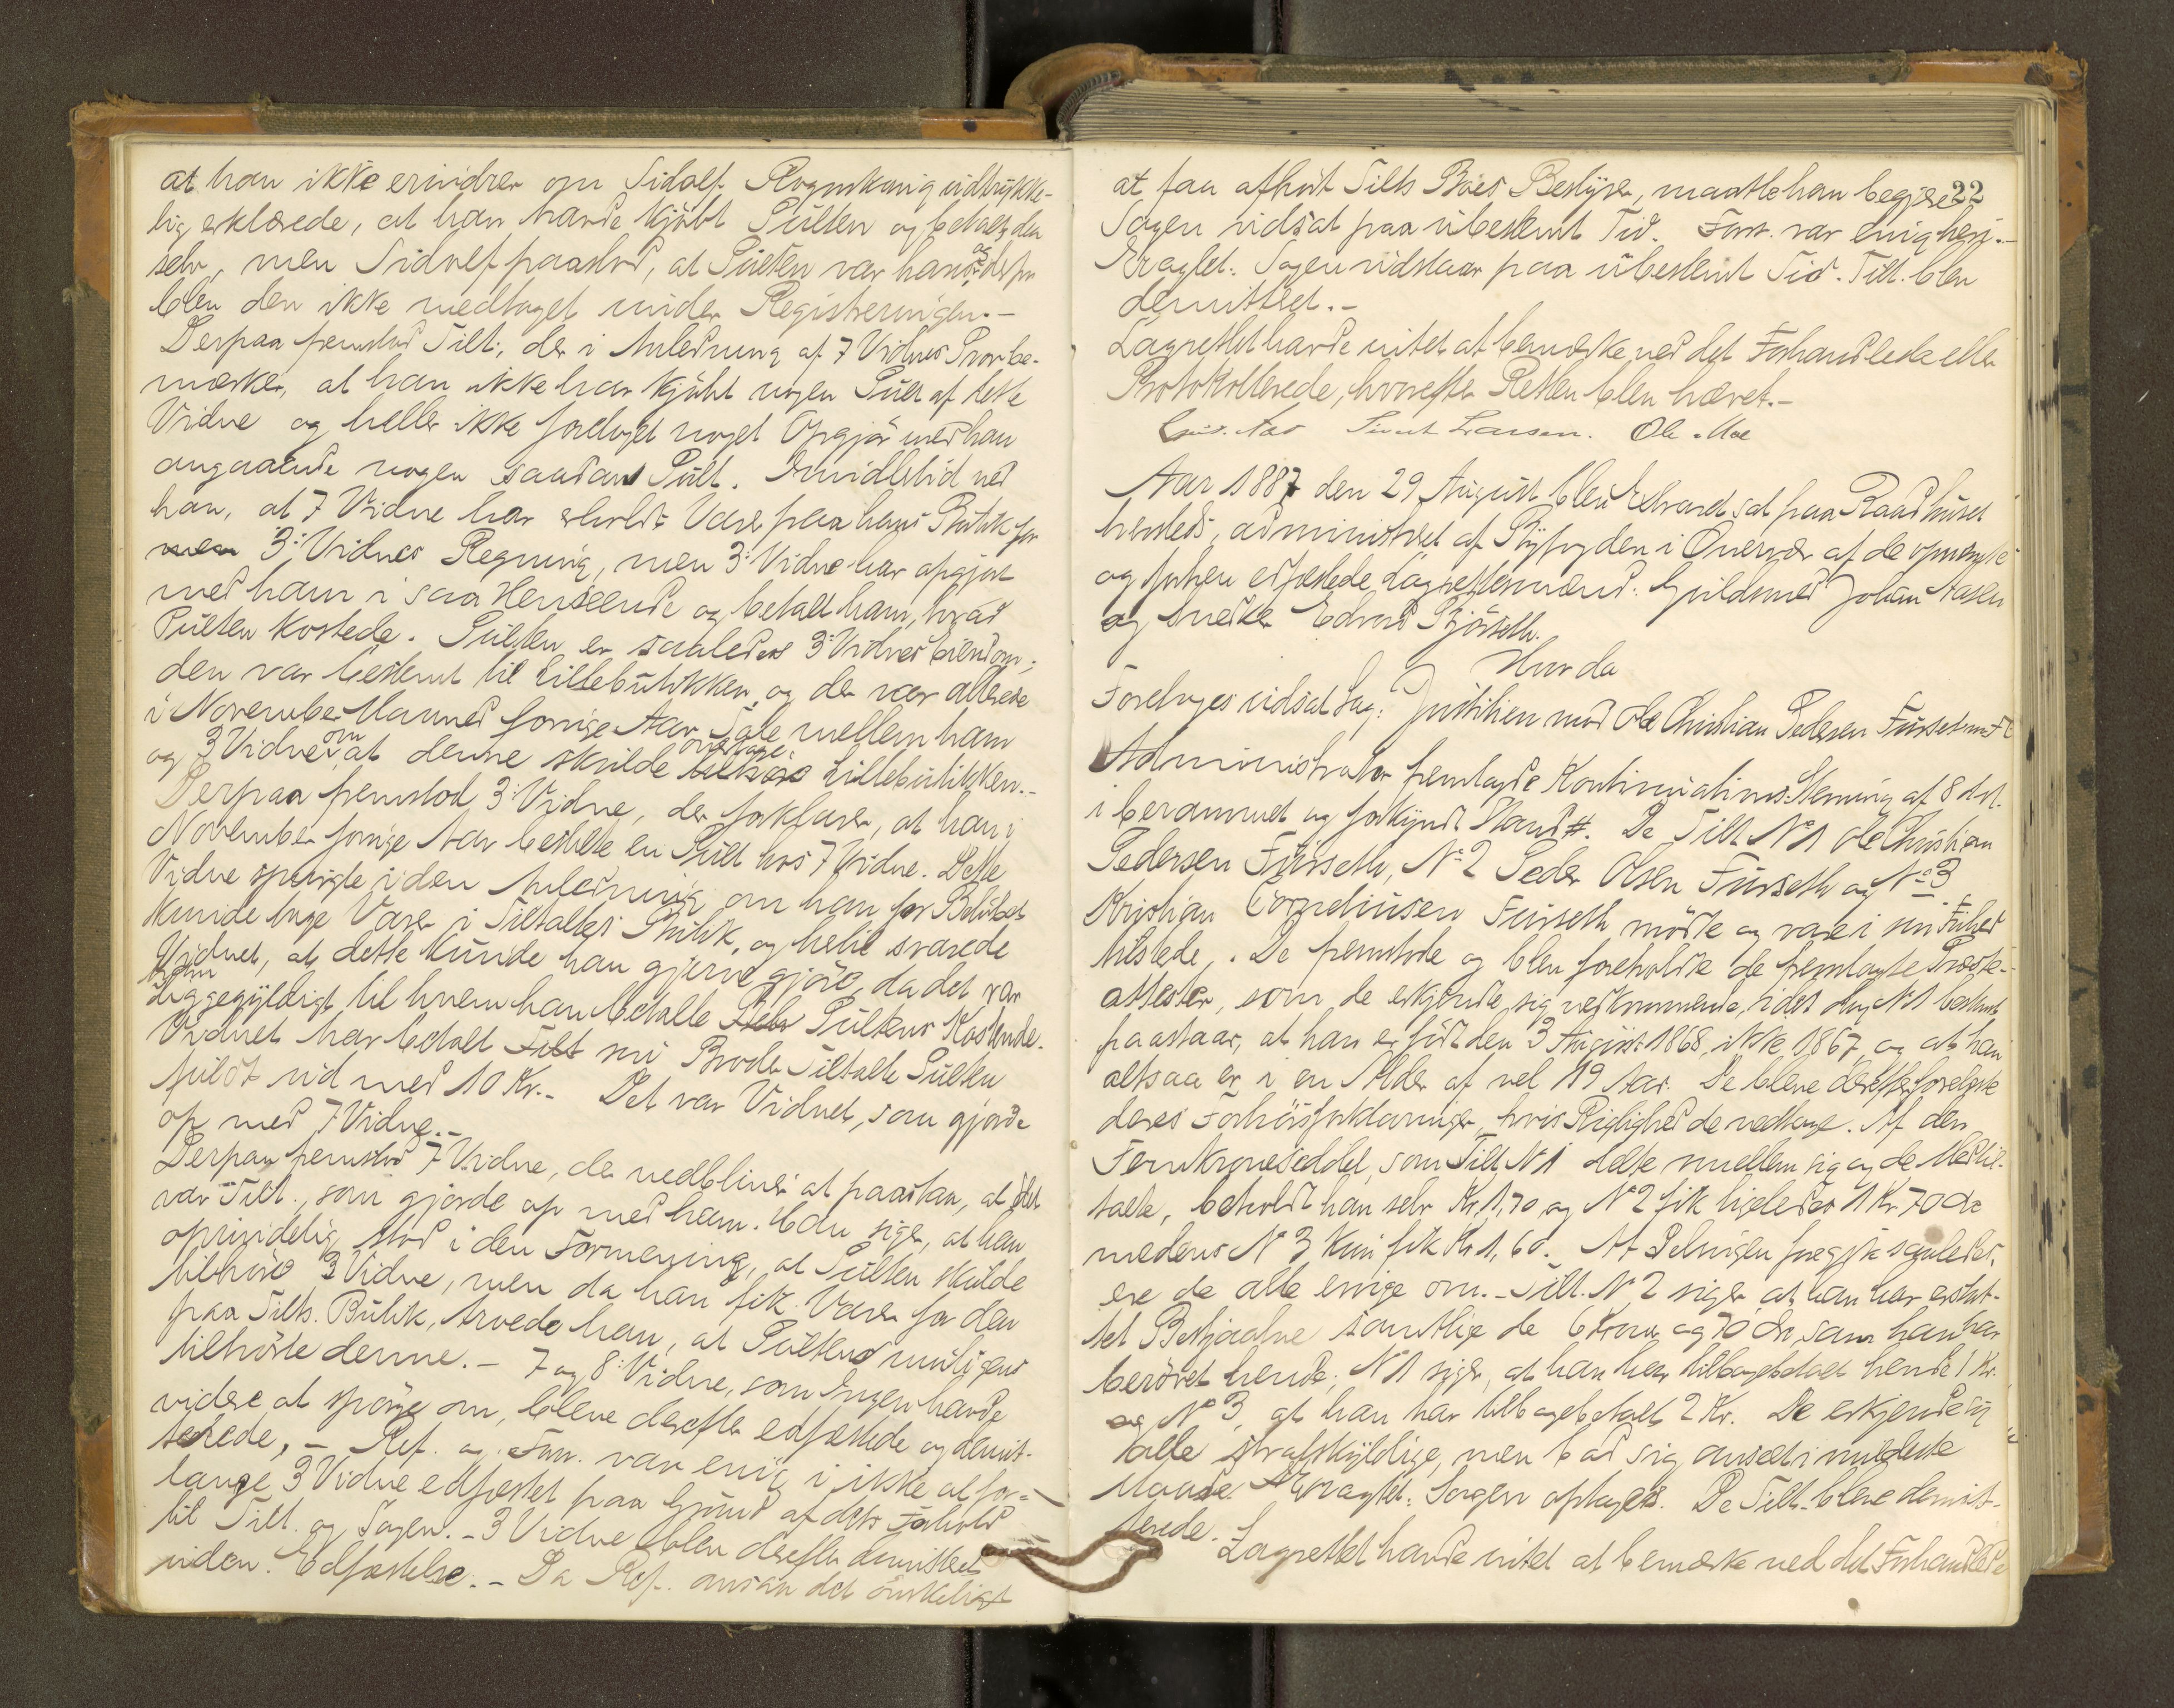 at han ikke erindrer om Sidolf Rognskaug udtrykke-
lig erklærede, at han havde kjöbt Pulten og betalt den
selv, men Sidolf paastod, at Pulten var hans, og derfor
blev den ikke medtaget under Registreringen.-
Derpaa fremstod Tilt., der i Anledning af 7 Vidnes Prov be-
mærker, at han ikke har kjöbt nogen Pult af dette
Vidne og heller ikke foretaget noget Opgjör med ham
angaaende nogen saadan Pult. Imidlertid ved
han, at 7 Vidne har erholdt Varer paa hans Butik for
men 3: Vidnes Regning, men 3: Vidne har opgjort
med ham i saa Henseende og betalt ham, hvad
Pulten kostede. Pulten er saaledes 3: Vidnes Eiendom;
den var bestemt til Lillebutikken, og der var allerede
i November Maaned forrige Aar Tale mellem ham
og 3 Vidne om at denne skulde overtage Lillebutikken.-
Derpaa fremstod 3: Vidne, der forklarer, at han i
November forrige Aar bestilte en Pult hos 7 Vidne. Dette
Vidne spurgte i den Anledning om han for Belöbet
kunde tage Varer i Tiltaltes Butik, og hertil svarede
Vidnet, at dette kunde han gjerne gjöre, da det var
ham liggegyldigt til hvem han betalte Pultens Kostende.
Vidnet har betalt Tilt sin Broder Tiltalte Pulten
fuldt ud med 10 Kr.- Det var Vidnet, som gjorde
op med 7 Vidne.-
Derpaa fremstod 7 Vidne, der vedbliver at paastaa, at det
var Tilt., som gjorde op med ham. Han siger, at han
oprindelig stod i den Formening, at Pulten skulde
tilhöre 3 Vidne, men da han fik Varer for den
paa Tilts. Butik, troede han, at Pulten muligens
tilhörte denne.- 7 og 8: Vidne, som Ingen havde
videre at spörge om, bleve derefter edfæstede og demit-
terede,- Ref. og Forsv. var enig i ikke at for-
lange 3 Vidne edfæstet paa Grund af dets Forhold
til Tilt. og Sagen.- 3 Vidne blev derefter demitteret
uden Edfæstelse.- Da Ref. ansaa det önskeligt
22
at faa afhört Tilts Boes Bestyrer, maatte han begjære
Sagen udsat paa ubestemt Tid. Forsv. var enig heri.-
Eragtet: Sagen udstaar paa ubestemt Tid. Tilt. blev
demitteret.-
Lagrettet havde intet at bemærke ved det Forhandlede eller
Protokollerede, hvorefter Retten blev hævet.-
Larsen. Ole Moe
Aar 1887 den 29 August blev Extraret sat paa Raadhuset
hersteds, administreret af Byfogden i Overvær af de opnævnte
og forhen edfæstede Lagrettesmænd: Guldsmed Johan Aasen
og Snedker Edvard Bjørseth.
Hvor da
Foretoges udsat Sag: Justitien mod Ole Christian Pedersen Furseth m Fl
Administrator fremlagde Kontinuations Stevning af 8 ds.
i berammet og forkyndt Stand #. De Tilt No 1 Ole Christian
Pedersen Furseth, No 2 Peder Olsen Furseth og No 3
Kristian Corneliusen Furseth mödte og vare i sin Frihed
tilstede. De fremstode og blev foreholdte de fremlagte Præste-
attester, som de erkjendte sig vedkommende, idet dog No 1 bestemt
paastaar, at han er född den 3 August 1868, ikke 1867, og at han
altsaa er i en Alder af vel 19 Aar. De bleve derefter forelæste
deres Forhörsforklaringer, hvis Rigtighed de vedtoge. Af den
Femkroneseddel, som Tilt No 1 delte mellem sig og de Medtil-
talte, beholdt han selv Kr. 1,70 og No 2 fik ligeledes 1 Kr 70 Öre
medens No 3 kun fik Kr 1,60. At Delingen foregik saaledes,
ere de alle enige om.- Tilt. No 2 siger at han har erstat-
tet Bestjaalne samtlige de 6 Kroner og 70 Öre som han har
berövet hende; No 1 siger, at han har tilbagebetalt hende 1 Kr.
og No 3, at han har tilbagebetalt 2 Kr. De erkjende sig
alle strafskyldige, men bad sig anseet i mildeste
Maade. Eragtet: Sagen optages. De Tilt. bleve demit-
terede.
Lagrettet havde intet at bemærke ved det Forhandlede